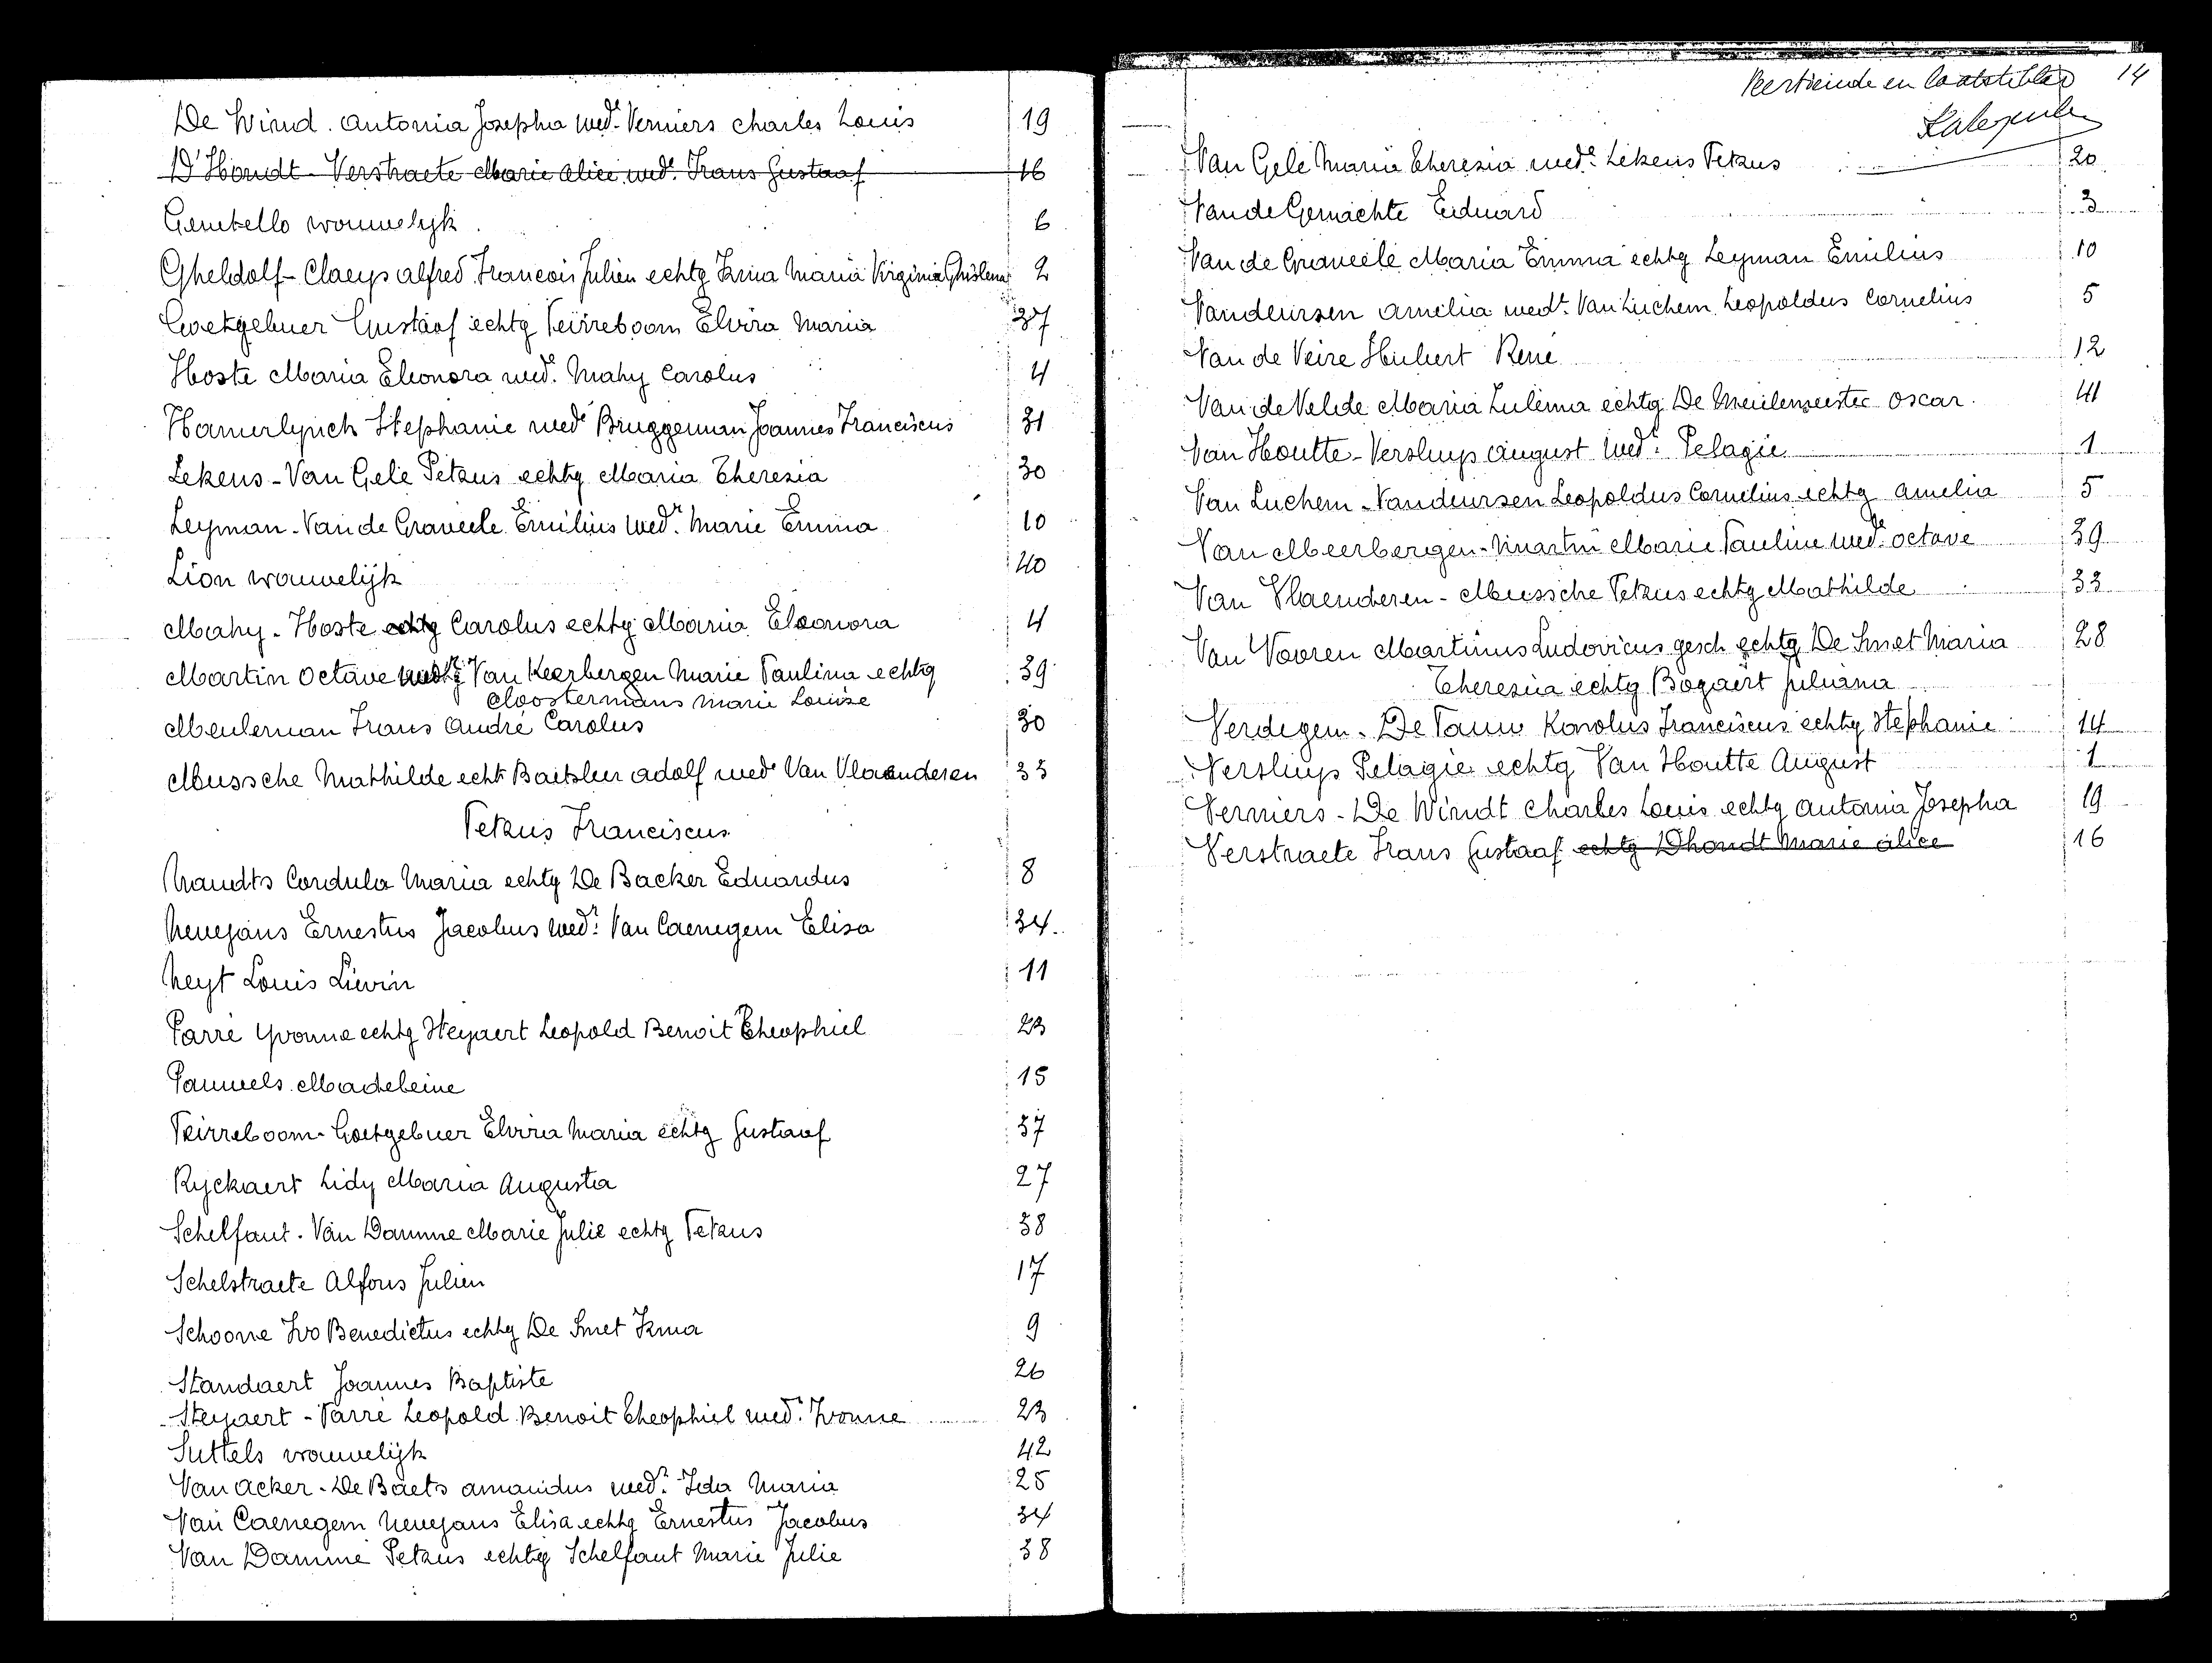 De Wind. Antonia Josepha wed.e Verniers Charles Louis 19
D'Hondt - Verstraete Marie Alice wed.e Frans Gustaaf 16
Genetello vrouwelijk 6
Gheldolf - Claeys Alfred Francois Julien echtg Irma Maria Virginia Ghislena 2
Goetgebuer Gustaaf echtg Peirreboom Elvira Maria 37
Hoste Maria Eleonora wed.e Mahy Carolus 4
Hamerlynck Stephanie wede Bruggeman Joannes Franciscus 31
Lekens - Van Gele Petrus echtg Maria Theresia 30
Leyman - Van de Graveele Emilius wed.r Marie Emma 10
Lion vrouwelijk 40
Mahy - Hoste echtg Carolus echtg Maria Eleonora 4
Martin Octave Van Keerbergen Marie Paulina echtg 39
Cloostermans Marie Louise
Meuleman Frans André Carolus 30
Mussche Mathilde echt Baetslen Adolf wede Van Vlaanderen 33
Petrus Franciscus
Naudts Cordula Maria echtg De Backer Eduardus 8
Neuejans Ernestus Jacobus wed.r Van Caenegem Elisa 34
Neyt Louis Liévin 11
Parré Yvonne echtg Steyaert Leopold Benoit Theophiel 23
Pauwels Madeleine 15
Peirreboom - Goetgebuer Elvira Maria echtg Gustaaf 37
Ryckaert Lidy Maria Augusta 27
Schelfaut - Van Damme Marie Julie echtg Petrus 38
Schelstraete Alfons Julien 17
Schoone Ivo Benedictus echtg De Smet Irma 9
Standaert Joannes Baptiste 26
Steyaert - Parré Leopold Benoit Theophiel wed.r Ivonne 23
Suttels vrouwelijk 42
Van Acker - De Baets Amandus wed.r Ida Maria 25
Van Caenegem Neuejans Elisa echtg Ernestus Jacobus 34
Van Damme Petrus echtg Schelfaut Marie Julie 38
Veertiende en laatste blad 14
Van Gele Maria Theresia wed.e Lekens Petrus 20
Van de Gemachte Eduard 3
Van de Graveele Maria Emma echtg Leyman Emilius 10
Vandeursen Amelia wed.e Van Luchem Leopoldus Cornelius 5
Van de Veire Hubert René 12
Van de Velde Maria Zulema echtg De Meulemeester Oscar 41
Van Houtte - Versluys August wed.r Pelagie 1
Van Luchem - Vandeursen Leopoldus Cornelius echtg Amelia 5
Van Meerbergen - Martin Marie Pauline wed.e Octave 39
Van Vlaenderen - Mussche Petrus echtg Mathilde 33
Van Vooren Martinus Ludovicus gesch echtg De Smet Maria 28
Theresia echtg Bogaert Juliana
Verdegem - De Pauw Karolus Franciscus echtg Stephanie 14
Versluys Pelagie echtg Van Houtte August 1
Verniers - De Windt Charles Louis echtg Antonia Josepha 19
Verstraete Frans Gustaaf echtg Dhondt Marie Alice 16